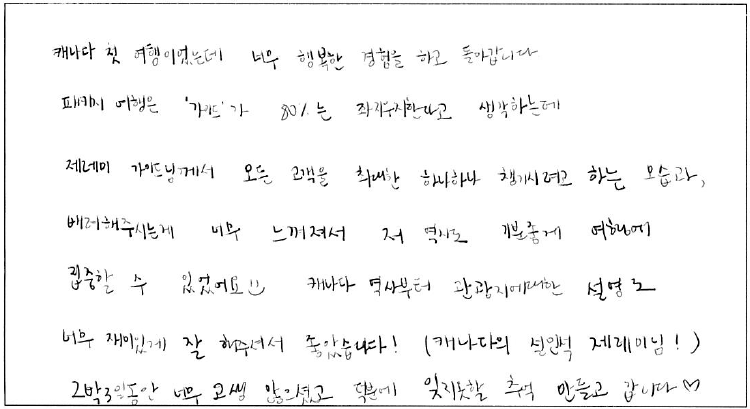 캐나다 첫 여행이었는데 너무 행복한 경험을 하고 돌아갑니다
패키지 여행은 '가이드'가 80%는 좌지우지한다고 생각하는데
제레미 가이드님께서 모든 고객을 최대한 하나하나 챙기시려고 하는 모습과,
배려해주시는게 너무 느껴져서 저 역시도 기분좋게 여행에
집중할 수 있었어요 캐나다 역사부터 관광지에대한 설명도
너무 재미있게 잘 해주셔서 좋았습니다! (캐나다의 설민석 제레미님!)
2박3일동안 너무 고생 많으셨고 덕분에 잊지못할 추억 만들고 갑니다♡